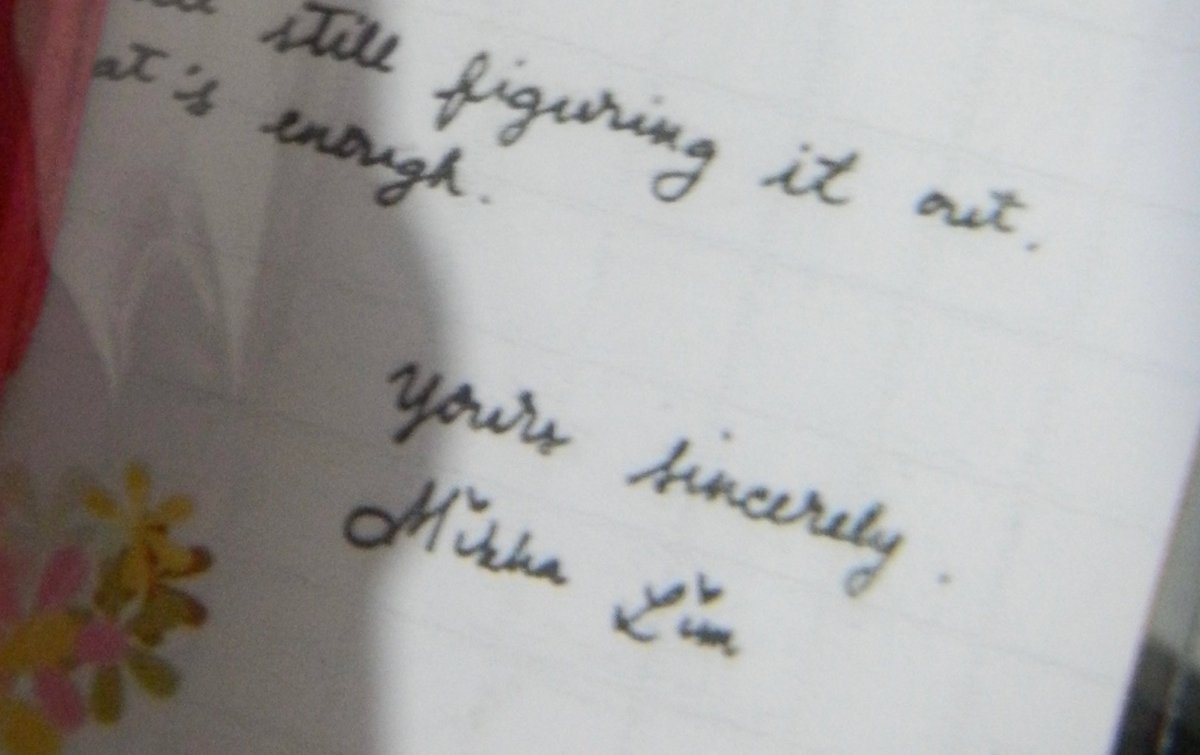 still figuring it out.
at's enough.
yours sincerely.
Mikha Lim